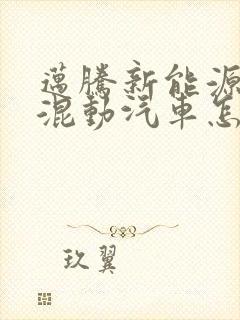 邁騰新能源
混動汽車怎
玖翼